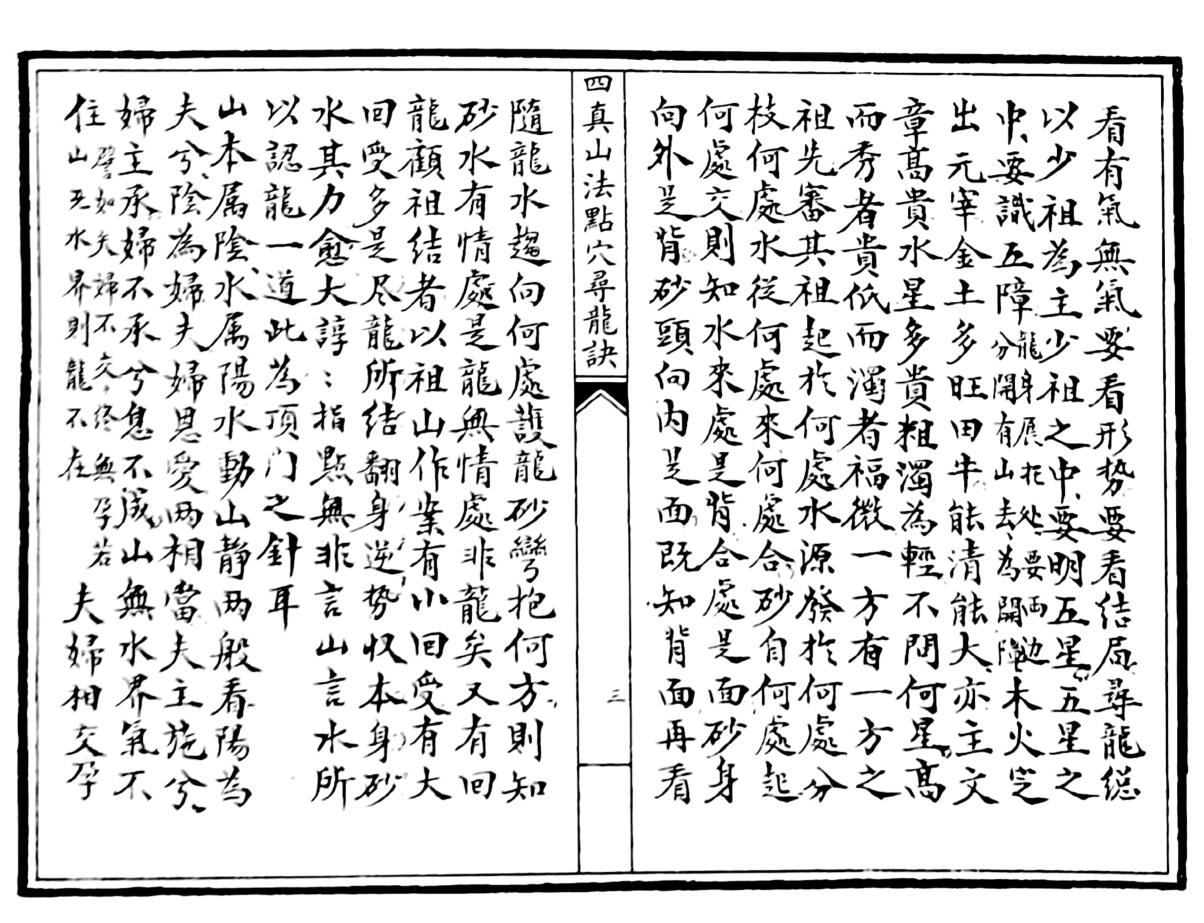 看有氣無氣要看形势要看結局尋龍総
以少祖為主少祖之中要明五星五星之
中要識五障分開有山去為開障龍身展托处要両边木火定
出元宰金土多旺田牛能清能大亦主文
章髙貴水星多貴粗濁為輕不問何星髙
而秀者貴低而濁者福微一方有一方之
祖先審其祖起於何處水源發於何處分
枝何處水從何處來何處合砂自何處起
何處交則知水來處是背合處是面砂身
向外是背砂頭向内是面既知背面再看
四真山法點穴尋龍訣
三
隨龍水趨向何處護龍砂彎抱何方則知
砂水有情處是龍無情處非龍矣又有回
龍顧祖結者以祖山作案有小回受有大
回受多是尽龍所结翻身逆势收本身砂
水其力愈大諄〻指點無非言山言水所
以認龍一道此為頂门之針耳
山本属陰水属陽水動山静両般看陽為
夫兮陰為婦夫婦恩愛両相當夫主施兮
婦主承婦不承兮息不成山無水界氣不
住譬如夫婦不交终無孕若山无水界則龍不在夫婦相交孕